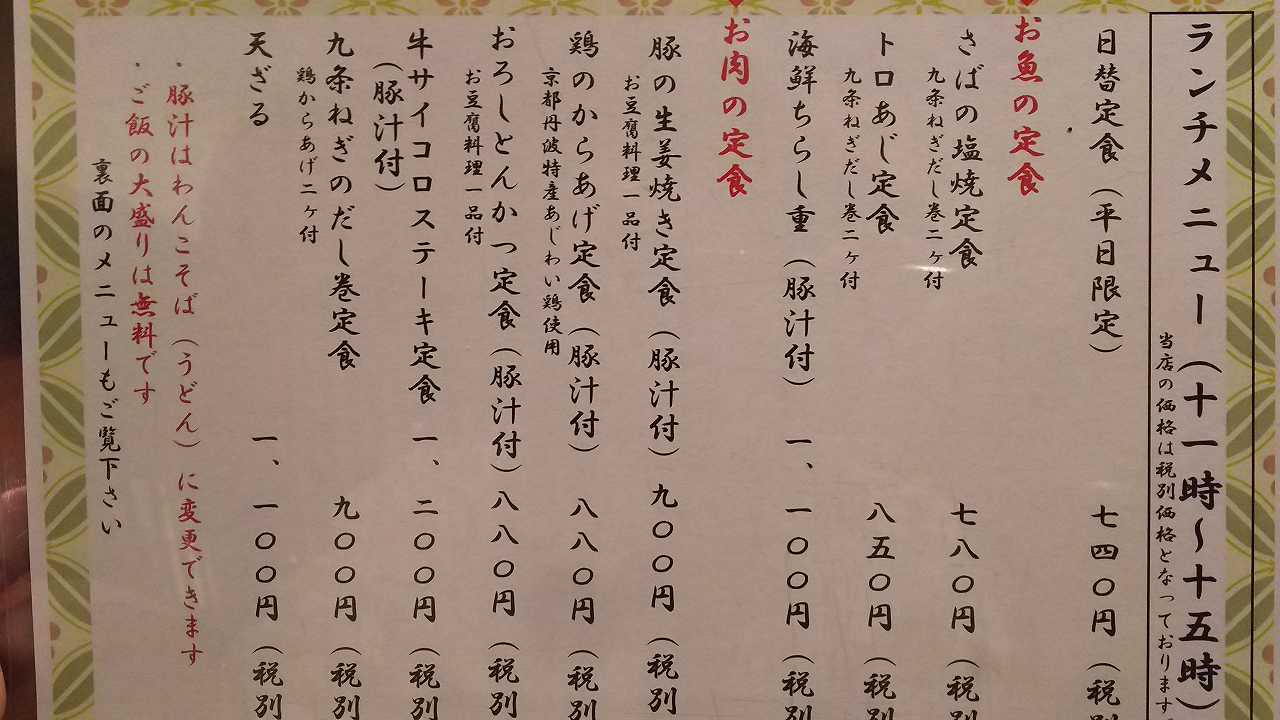 ランチメニュー（十一時〜十五時）
当店の価格は税別価格となっております
日替定食（平日限定）　七四〇円（税別
♥お魚の定食
さばの塩焼定食　七八〇円（税別
九条ねぎだし巻二ヶ付
トロあじ定食　八五〇円（税別
九条ねぎだし巻二ヶ付
海鮮ちらし重（豚汁付）　一、一〇〇円（税別
♥お肉の定食
豚の生姜焼き定食（豚汁付）九〇〇円（税別
お豆腐料理一品付
鶏のからあげ定食（豚汁付）　八八〇円（税別
京都丹波特産あじわい鶏使用
おろしとんかつ定食（豚汁付）八八〇円（税別
お豆腐料理一品付
牛サイコロステーキ定食　一、二〇〇円（税別
（豚汁付）
九条ねぎのだし巻定食　九〇〇円（税別
鶏からあげ二ヶ付
天ざる　一、一〇〇円（税別
・豚汁はわんこそば（うどん）に変更できます
・ご飯の大盛りは無料です
裏面のメニューもご覧下さい